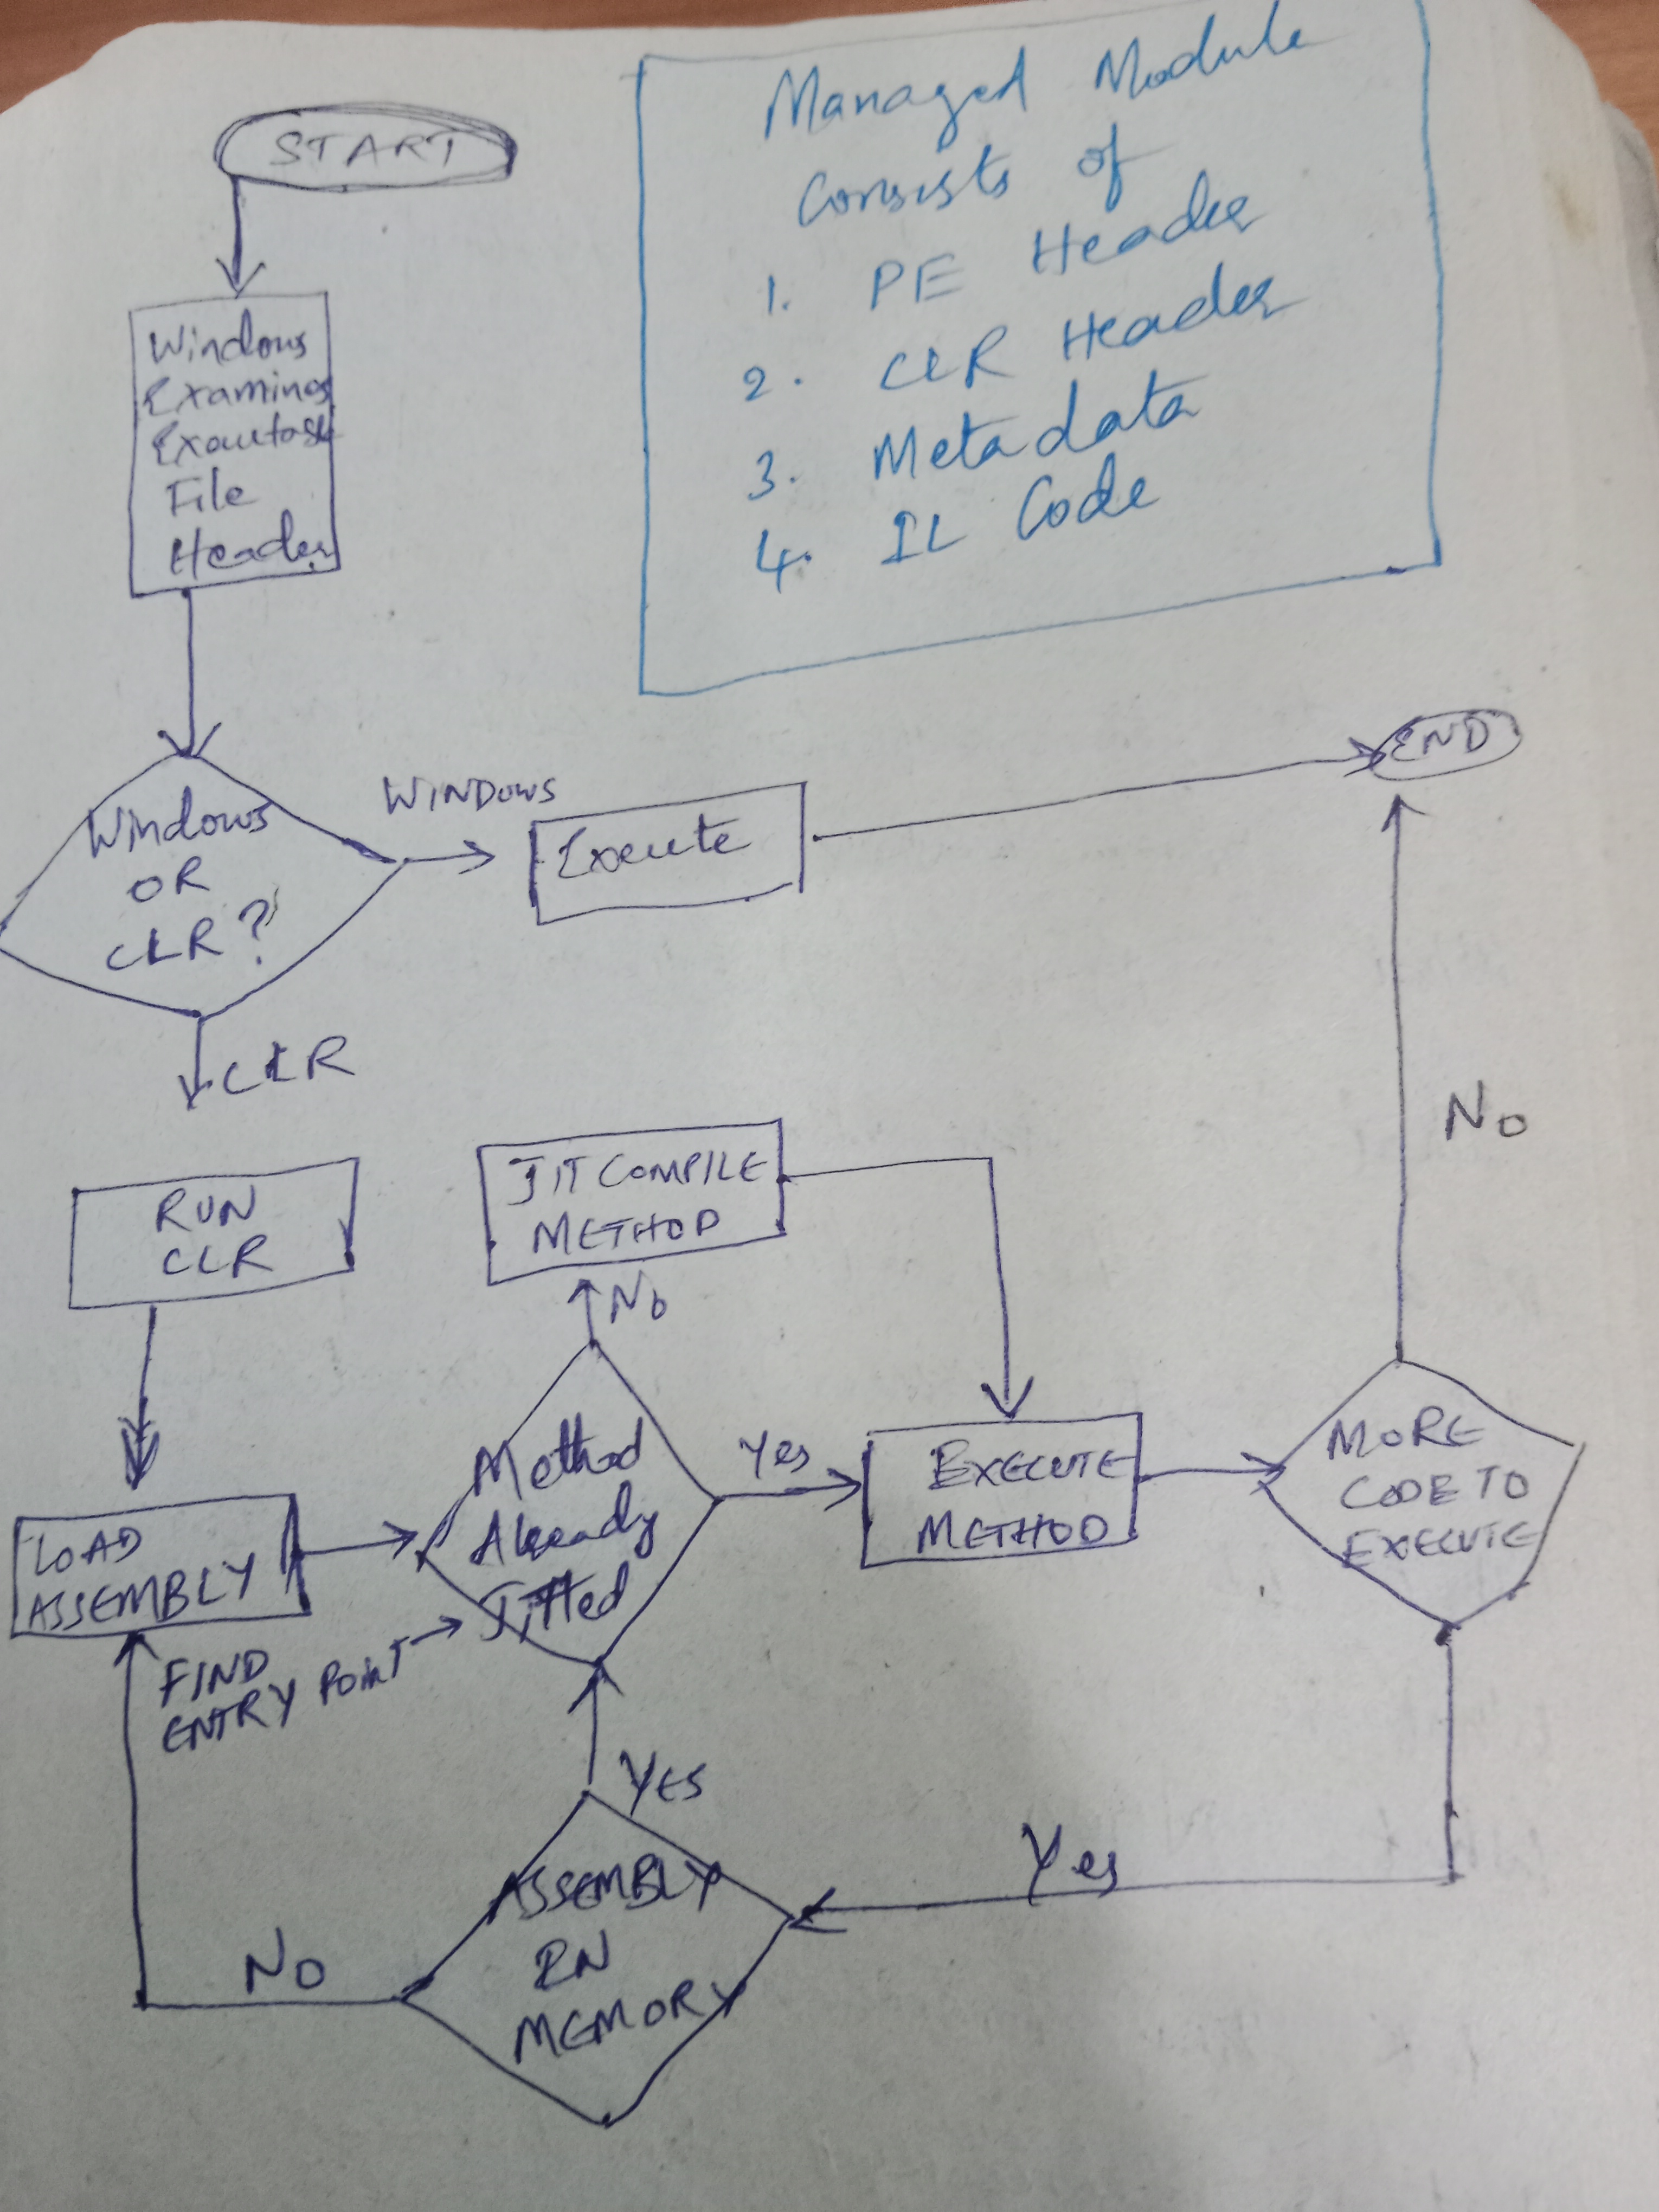 START
Managed Module
Consists of
1. PE Header
2. CLR Header
3. Metadata
4. IL Code
Windows
Examines
File
Header
Windows
OR
CLR?
WINDOWS
Execute
END
CLR
RUN
CLR
JIT COMPILE
METHOD
No
No
Method
Already
Jitted
Yes
EXECUTE
METHOD
MORE
CODE TO
EXECUTE
LOAD
ASSEMBLY
FIND
ENTRY POINT
YES
Yes
ASSEMBLY
IN
MEMORY
No